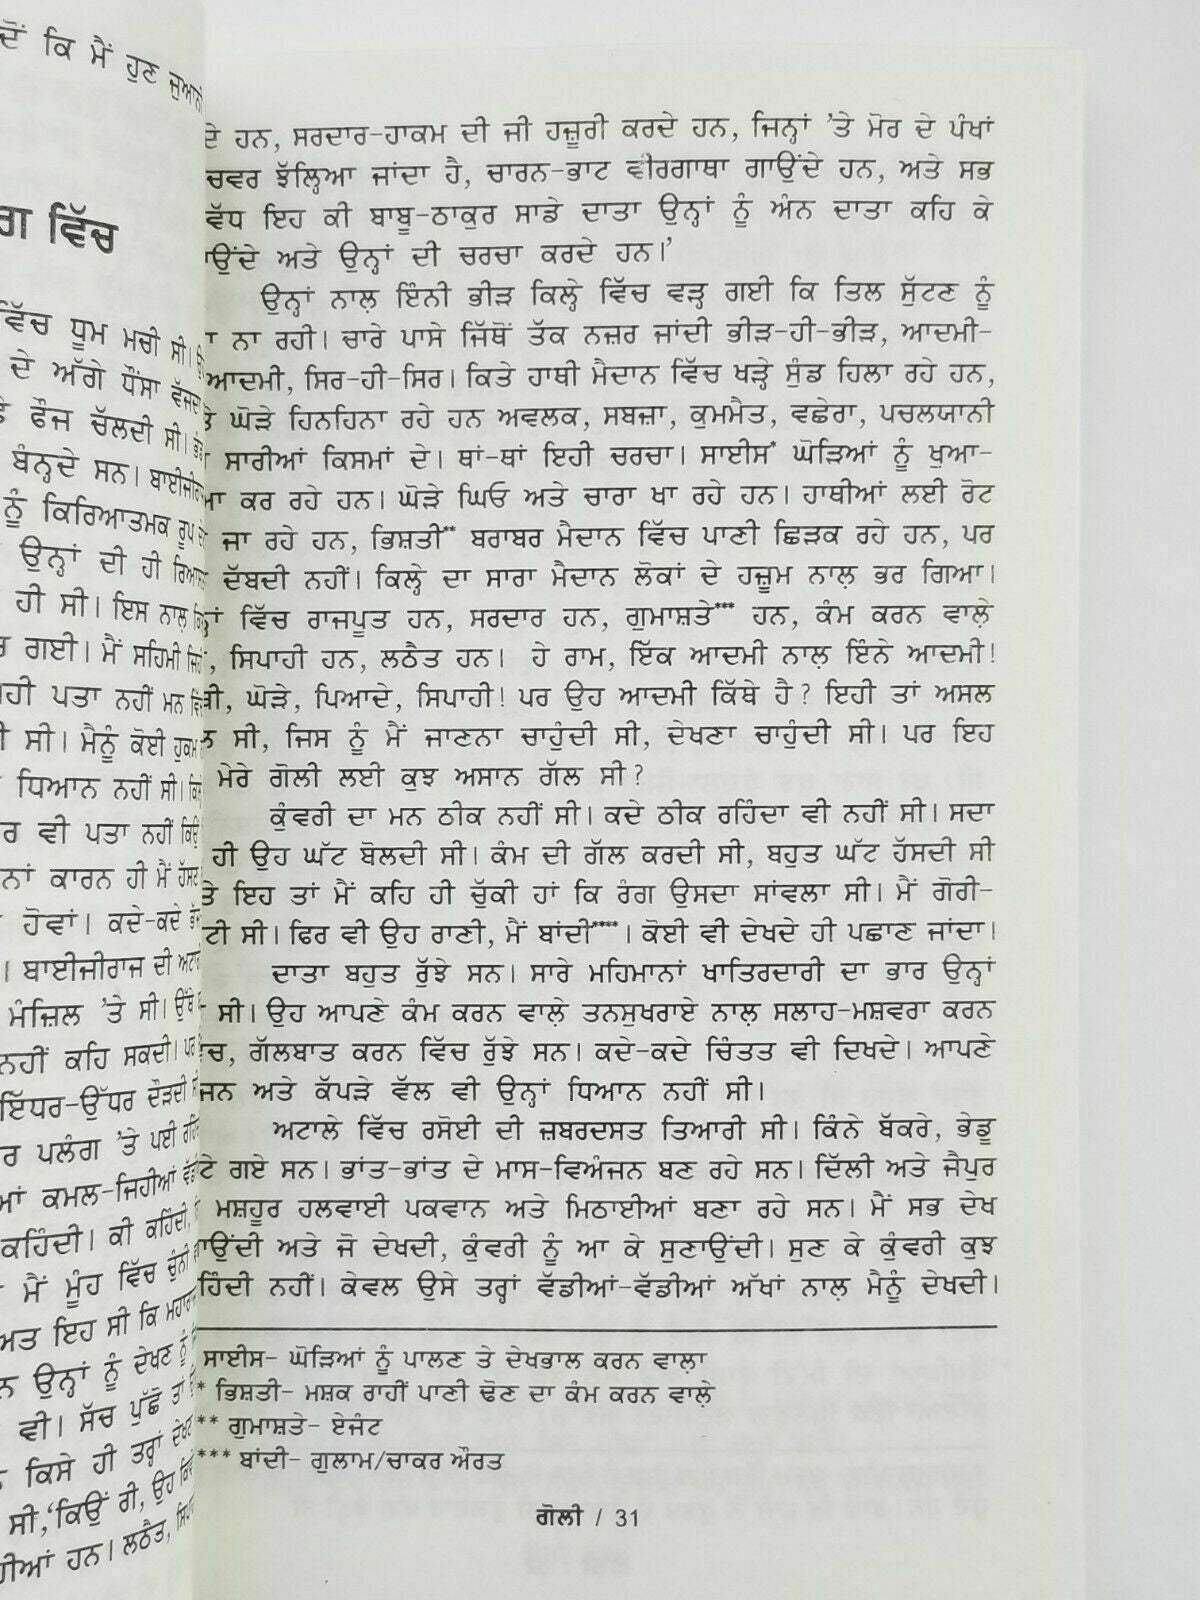 ਦੋਂ ਕਿ ਮੈਂ ਹੁਣ
ਗ ਵਿੱਚ
ਵਿੱਚ ਧੂਮ ਮਚੀ ਸੀ।
ਦੇ ਅੱਗੇ ਧੌਂਸਾ ਵੱਜਦਾ
ਫੌਜ ਚੱਲਦੀ ਸੀ।
ਬੰਨ੍ਹਦੇ ਸਨ।
ਨੂੰ ਕਿਰਿਆਤਮਕ ਰੂਪ
ਉਨ੍ਹਾਂ ਦੀ ਹੀ
ਹੀ ਸੀ। ਇਸ ਨਾਲ਼
ਗਈ। ਮੈਂ ਸਹਿਮੀ
ਪਤਾ ਨਹੀਂ ਮਨ
ਸੀ। ਮੈਨੂੰ ਕੋਈ ਹੁਕਮ
ਧਿਆਨ ਨਹੀਂ ਸੀ।
ਵੀ ਪਤਾ ਨਹੀਂ
ਕਾਰਨ ਹੀ ਮੈਂ
ਹੋਵਾਂ। ਕਦੇ-ਕਦੇ
। ਬਾਈਜੀਰਾਜ ਦੀ
ਮੰਜ਼ਿਲ 'ਤੇ ਸੀ। ਉੱਥੇ
ਨਹੀਂ ਕਹਿ ਸਕਦੀ।
ਇੱਧਰ-ਉੱਧਰ ਦੌੜਦੀ
ਪਲੰਗ 'ਤੇ ਪਈ
ਕਮਲ-ਜਿਹੀਆਂ
ਕਹਿੰਦੀ। ਕੀ ਕਹਿੰਦੀ,
ਮੈਂ ਮੂੰਹ ਵਿੱਚ ਚੁੰਨੀ
ਇਹ ਸੀ ਕਿ
ਉਨ੍ਹਾਂ ਨੂੰ ਦੇਖਣ ਨੂੰ
ਵੀ। ਸੱਚ ਪੁੱਛੋ ਤਾਂ
ਕਿਸੇ ਹੀ ਤਰ੍ਹਾਂ ਦੇਖਣ
ਸੀ,'ਕਿਉਂ ਰੀ, ਉਹ
ਹਨ। ਲਠੈਤ,
ਦੇ ਹਨ, ਸਰਦਾਰ-ਹਾਕਮ ਦੀ ਜੀ ਹਜ਼ੂਰੀ ਕਰਦੇ ਹਨ, ਜਿਨ੍ਹਾਂ 'ਤੇ ਮੋਰ ਦੇ ਪੰਖਾਂ
ਚਵਰ ਝੱਲ੍ਹਿਆ ਜਾਂਦਾ ਹੈ, ਚਾਰਨ-ਭਾਟ ਵੀਰਗਾਥਾ ਗਾਉਂਦੇ ਹਨ, ਅਤੇ ਸਭ
ਵੱਧ ਇਹ ਕੀ ਬਾਬੂ-ਠਾਕੁਰ ਸਾਡੇ ਦਾਤਾ ਉਨ੍ਹਾਂ ਨੂੰ ਅੰਨ ਦਾਤਾ ਕਹਿ ਕੇ
ਾਉਂਦੇ ਅਤੇ ਉਨ੍ਹਾਂ ਦੀ ਚਰਚਾ ਕਰਦੇ ਹਨ।'
ਉਨ੍ਹਾਂ ਨਾਲ਼ ਇੰਨੀ ਭੀੜ ਕਿਲ੍ਹੇ ਵਿੱਚ ਵੜ੍ਹ ਗਈ ਕਿ ਤਿਲ ਸੁੱਟਣ ਨੂੰ
ਾ ਨਾ ਰਹੀ। ਚਾਰੇ ਪਾਸੇ ਜਿੱਥੋਂ ਤੱਕ ਨਜ਼ਰ ਜਾਂਦੀ ਭੀੜ-ਹੀ-ਭੀੜ, ਆਦਮੀ-
ਆਦਮੀ, ਸਿਰ-ਹੀ-ਸਿਰ। ਕਿਤੇ ਹਾਥੀ ਮੈਦਾਨ ਵਿੱਚ ਖੜ੍ਹੇ ਸੁੰਡ ਹਿਲਾ ਰਹੇ ਹਨ,
ਤੇ ਘੋੜੇ ਹਿਨਹਿਨਾ ਰਹੇ ਹਨ ਅਵਲਕ, ਸਬਜ਼ਾ, ਕੁਮਮੈਤ, ਵਛੇਰਾ, ਪਚਲਯਾਨੀ
ਸਾਰੀਆਂ ਕਿਸਮਾਂ ਦੇ। ਥਾਂ-ਥਾਂ ਇਹੀ ਚਰਚਾ। ਸਾਈਸ* ਘੋੜਿਆਂ ਨੂੰ ਖੁਆ-
ਆ ਕਰ ਰਹੇ ਹਨ। ਘੋੜੇ ਘਿਓ ਅਤੇ ਚਾਰਾ ਖਾ ਰਹੇ ਹਨ। ਹਾਥੀਆਂ ਲਈ ਰੋਟ
ਜਾ ਰਹੇ ਹਨ, ਭਿਸ਼ਤੀ** ਬਰਾਬਰ ਮੈਦਾਨ ਵਿੱਚ ਪਾਣੀ ਛਿੜਕ ਰਹੇ ਹਨ, ਪਰ
ਦੱਬਦੀ ਨਹੀਂ। ਕਿਲ੍ਹੇ ਦਾ ਸਾਰਾ ਮੈਦਾਨ ਲੋਕਾਂ ਦੇ ਹਜ਼ੂਮ ਨਾਲ਼ ਭਰ ਗਿਆ।
ਵਿੱਚ ਰਾਜਪੂਤ ਹਨ, ਸਰਦਾਰ ਹਨ, ਗੁਮਾਸ਼ਤੇ*** ਹਨ, ਕੰਮ ਕਰਨ ਵਾਲ਼ੇ
, ਸਿਪਾਹੀ ਹਨ, ਲਠੈਤ ਹਨ। ਹੇ ਰਾਮ, ਇੱਕ ਆਦਮੀ ਨਾਲ਼ ਇੰਨੇ ਆਦਮੀ!
ਘੋੜੇ, ਪਿਆਦੇ, ਸਿਪਾਹੀ! ਪਰ ਉਹ ਆਦਮੀ ਕਿੱਥੇ ਹੈ? ਇਹੀ ਤਾਂ ਅਸਲ
ਸੀ, ਜਿਸ ਨੂੰ ਮੈਂ ਜਾਣਨਾ ਚਾਹੁੰਦੀ ਸੀ, ਦੇਖਣਾ ਚਾਹੁੰਦੀ ਸੀ। ਪਰ ਇਹ
ਮੇਰੇ ਗੋਲੀ ਲਈ ਕੁਝ ਅਸਾਨ ਗੱਲ ਸੀ?
ਕੁੰਵਰੀ ਦਾ ਮਨ ਠੀਕ ਨਹੀਂ ਸੀ। ਕਦੇ ਠੀਕ ਰਹਿੰਦਾ ਵੀ ਨਹੀਂ ਸੀ। ਸਦਾ
ਹੀ ਉਹ ਘੱਟ ਬੋਲਦੀ ਸੀ। ਕੰਮ ਦੀ ਗੱਲ ਕਰਦੀ ਸੀ, ਬਹੁਤ ਘੱਟ ਹੱਸਦੀ ਸੀ
ਤੇ ਇਹ ਤਾਂ ਮੈਂ ਕਹਿ ਹੀ ਚੁੱਕੀ ਹਾਂ ਕਿ ਰੰਗ ਉਸਦਾ ਸਾਂਵਲਾ ਸੀ। ਮੈਂ ਗੋਰੀ-
ਟੀ ਸੀ। ਫਿਰ ਵੀ ਉਹ ਰਾਣੀ, ਮੈਂ ਬਾਂਦੀ****। ਕੋਈ ਵੀ ਦੇਖਦੇ ਹੀ ਪਛਾਣ ਜਾਂਦਾ।
ਦਾਤਾ ਬਹੁਤ ਰੁੱਝੇ ਸਨ। ਸਾਰੇ ਮਹਿਮਾਨਾਂ ਖਾਤਿਰਦਾਰੀ ਦਾ ਭਾਰ ਉਨ੍ਹਾਂ
ਸੀ। ਉਹ ਆਪਣੇ ਕੰਮ ਕਰਨ ਵਾਲ਼ੇ ਤਨਸੁਖਰਾਏ ਨਾਲ਼ ਸਲਾਹ-ਮਸ਼ਵਰਾ ਕਰਨ
ਚ, ਗੱਲਬਾਤ ਕਰਨ ਵਿੱਚ ਰੁੱਝੇ ਸਨ। ਕਦੇ-ਕਦੇ ਚਿੰਤਤ ਵੀ ਦਿਖਦੇ। ਆਪਣੇ
ਜਨ ਅਤੇ ਕੱਪੜੇ ਵੱਲ ਵੀ ਉਨ੍ਹਾਂ ਧਿਆਨ ਨਹੀਂ ਸੀ।
ਅਟਾਲੇ ਵਿੱਚ ਰਸੋਈ ਦੀ ਜ਼ਬਰਦਸਤ ਤਿਆਰੀ ਸੀ। ਕਿੰਨੇ ਬੱਕਰੇ, ਭੇਡੂ
ਟੇ ਗਏ ਸਨ। ਭਾਂਤ-ਭਾਂਤ ਦੇ ਮਾਸ-ਵਿਅੰਜਨ ਬਣ ਰਹੇ ਸਨ। ਦਿੱਲੀ ਅਤੇ ਜੈਪੁਰ
ਮਸ਼ਹੂਰ ਹਲਵਾਈ ਪਕਵਾਨ ਅਤੇ ਮਿਠਾਈਆਂ ਬਣਾ ਰਹੇ ਸਨ। ਮੈਂ ਸਭ ਦੇਖ
ਾਉਂਦੀ ਅਤੇ ਜੋ ਦੇਖਦੀ, ਕੁੰਵਰੀ ਨੂੰ ਆ ਕੇ ਸੁਣਾਉਂਦੀ। ਸੁਣ ਕੇ ਕੁੰਵਰੀ ਕੁਝ
ਹਿੰਦੀ ਨਹੀਂ। ਕੇਵਲ ਉਸੇ ਤਰ੍ਹਾਂ ਵੱਡੀਆਂ-ਵੱਡੀਆਂ ਅੱਖਾਂ ਨਾਲ਼ ਮੈਨੂੰ ਦੇਖਦੀ।
ਸਾਈਸ- ਘੋੜਿਆਂ ਨੂੰ ਪਾਲਣ ਤੇ ਦੇਖਭਾਲ ਕਰਨ ਵਾਲ਼ਾ
* ਭਿਸ਼ਤੀ- ਮਸ਼ਕ ਰਾਹੀਂ ਪਾਣੀ ਢੋਣ ਦਾ ਕੰਮ ਕਰਨ ਵਾਲ਼ੇ
** ਗੁਮਾਸ਼ਤੇ- ਏਜੰਟ
*** ਬਾਂਦੀ- ਗੁਲਾਮ/ਚਾਕਰ ਔਰਤ
ਗੋਲੀ / 31